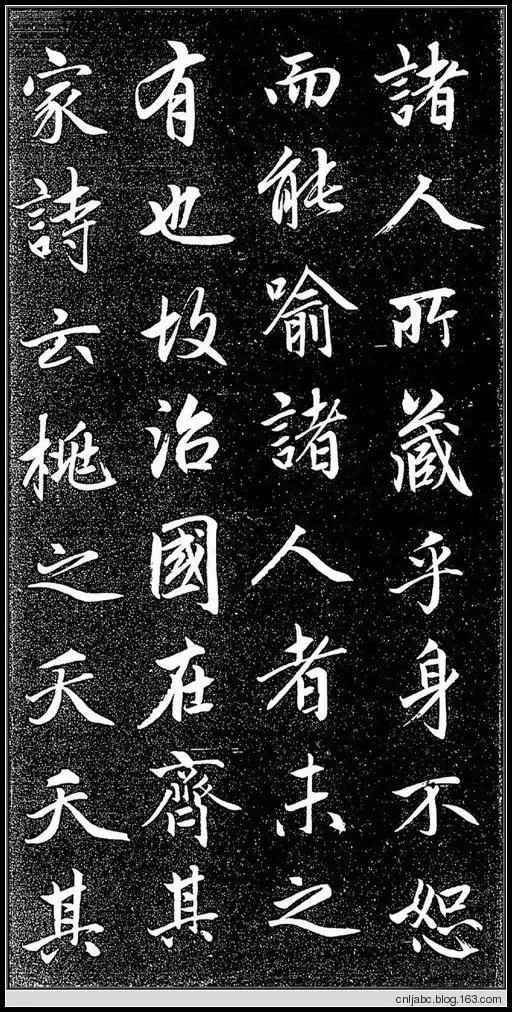 諸人所藏乎身不恕
而能喻諸人者未之
有也故治國在齊其
家詩云桃之夭夭其
cnljabc.blog.163.com